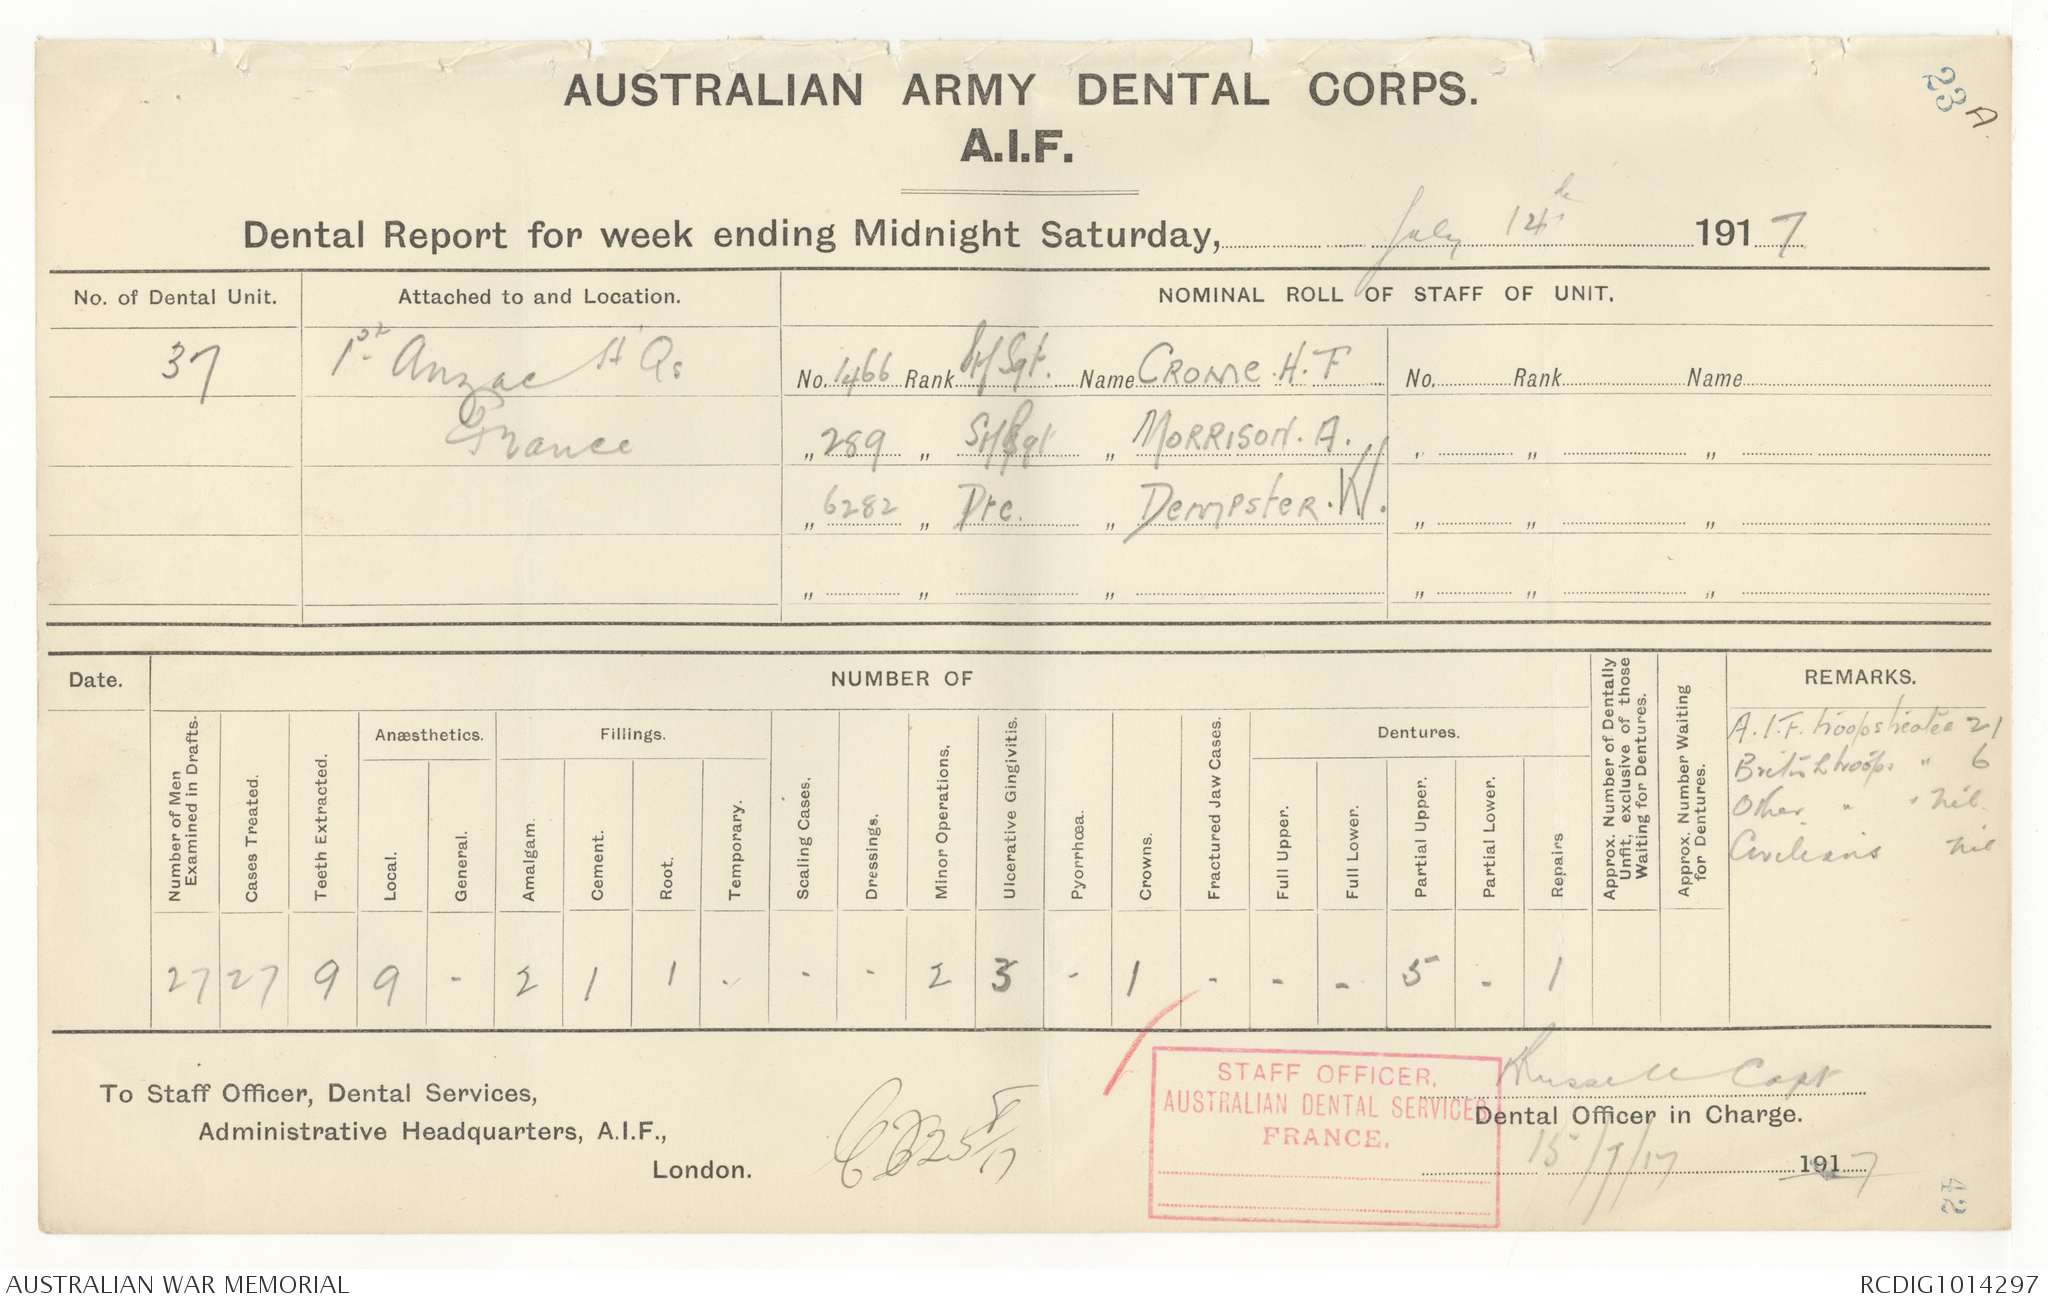 23
A.
AUSTRALIAN ARMY DENTAL CORPS.
A.I.F.
Dental Report for week ending Midnight Saturday, July 14th 1917
No. of Dental Unit. Attached to and Location. NOMINAL ROLL OF STAFF OF UNIT.
37 1st Anzac H Qs No. 1466 Rank S/Sgt. Name CROME. H. F No. Rank Name
France „ 289 „ S/Sgt „ MORRISON. A. „ „ „
„ 6282 „ Pte. „ DEMPSTER. W. „ „ „
„ „ „ „ „ „
Date. NUMBER OF REMARKS.
Number of Men Examined in Drafts.
Cases Treated.
Teeth Extracted.
Anæsthetics.
Local.
General.
Fillings.
Amalgam.
Cement.
Root.
Temporary.
Scaling Cases.
Dressings.
Minor Operations.
Ulcerative Gingivitis.
Pyorrhœa.
Crowns.
Fractured Jaw Cases.
Dentures.
Full Upper.
Full Lower.
Partial Upper.
Partial Lower.
Repairs
Approx. Number of Dentally Unfit, exclusive of those Waiting for Dentures.
Approx. Number Waiting for Dentures.
A.I.F. troops treated 21
British troops " 6
Other " " nil.
Civilians nil
27 27 9 9 - 2 1 1 - - - 2 3 - 1 - - - 5 - 1
To Staff Officer, Dental Services,
Administrative Headquarters, A.I.F.,
London.
STAFF OFFICER,
AUSTRALIAN DENTAL SERVICES
FRANCE.
Russell Capt
Dental Officer in Charge.
15/7/17 1917
42
AUSTRALIAN WAR MEMORIAL RCDIG1014297